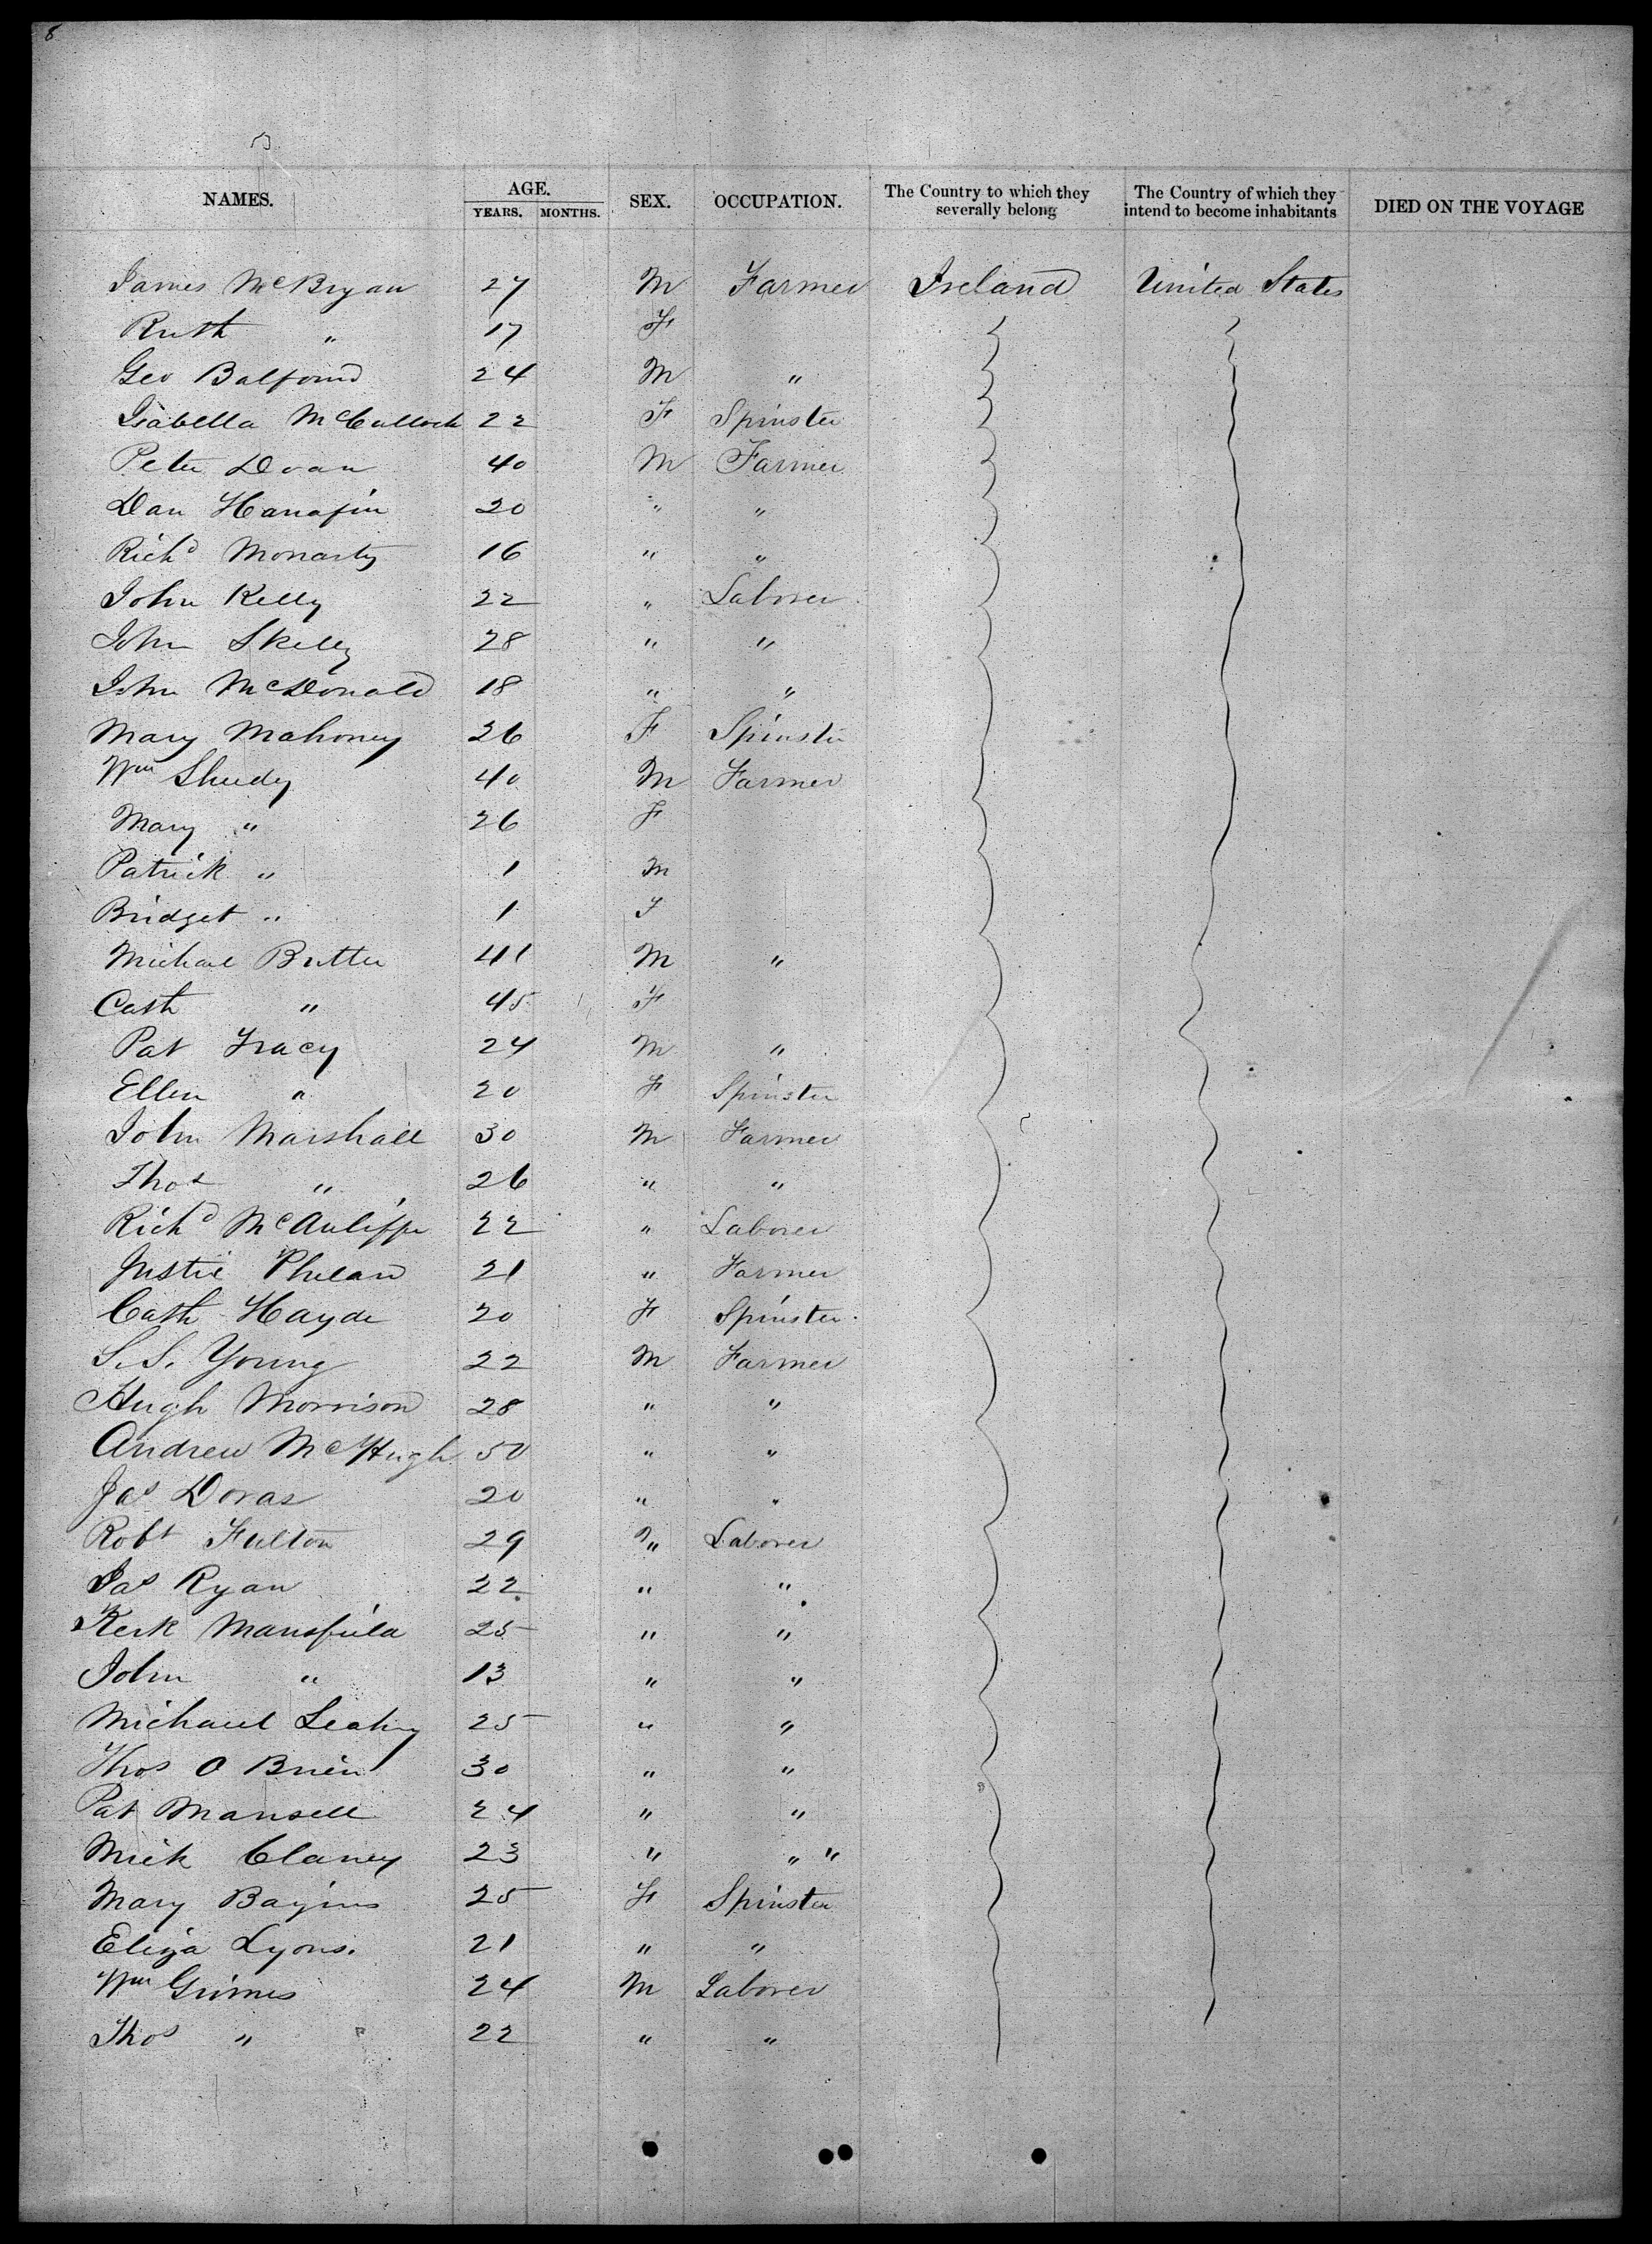 8
NAMES. AGE. SEX. OCCUPATION. The Country to which they severally belong The Country of which they intend to become inhabitants DIED ON THE VOYAGE
YEARS. MONTHS.
James McBryan 27 M Farmer Ireland United States
Ruth " 17 F
Geo Balfound 24 M "
Isabella McCulloch 22 F Spinster
Peter Doan 40 M Farmer
Dan Hanafin 20 " "
Richd Monarty 16 " "
John Kelly 22 " Laborer
John Skelly 28 " "
John McDonald 18 " "
Mary Mahoney 26 F Spinster
Wm Sheedy 40 M Farmer
Mary " 26 F
Patrick " 1 M
Bridget " 1 F
Michael Butler 41 M "
Cath " 45 F
Pat Tracy 24 M "
Ellen " 20 F Spinster
John Marshall 30 M Farmer
Thos " 26 " "
Richd McAuliffe 22 " Laborer
Justie Phelan 21 " Farmer
Cath Hayde 20 F Spinster
S. S. Young 22 M Farmer
Hugh Morrison 28 " "
Andrew McHugh 50 " "
Jas Doras 20 " "
Robt Fulton 29 " Laborer
Jas Ryan 22 " "
Kerk Mansfield 25 " "
John " 13 " "
Michael Leahy 25 " "
Thos O Brien 30 " "
Pat Mansell 24 " "
Mick Clancy 23 " " "
Mary Bayins 25 F Spinster
Eliza Lyons. 21 " "
Wm Grimes 24 M Laborer
Thos " 22 " "